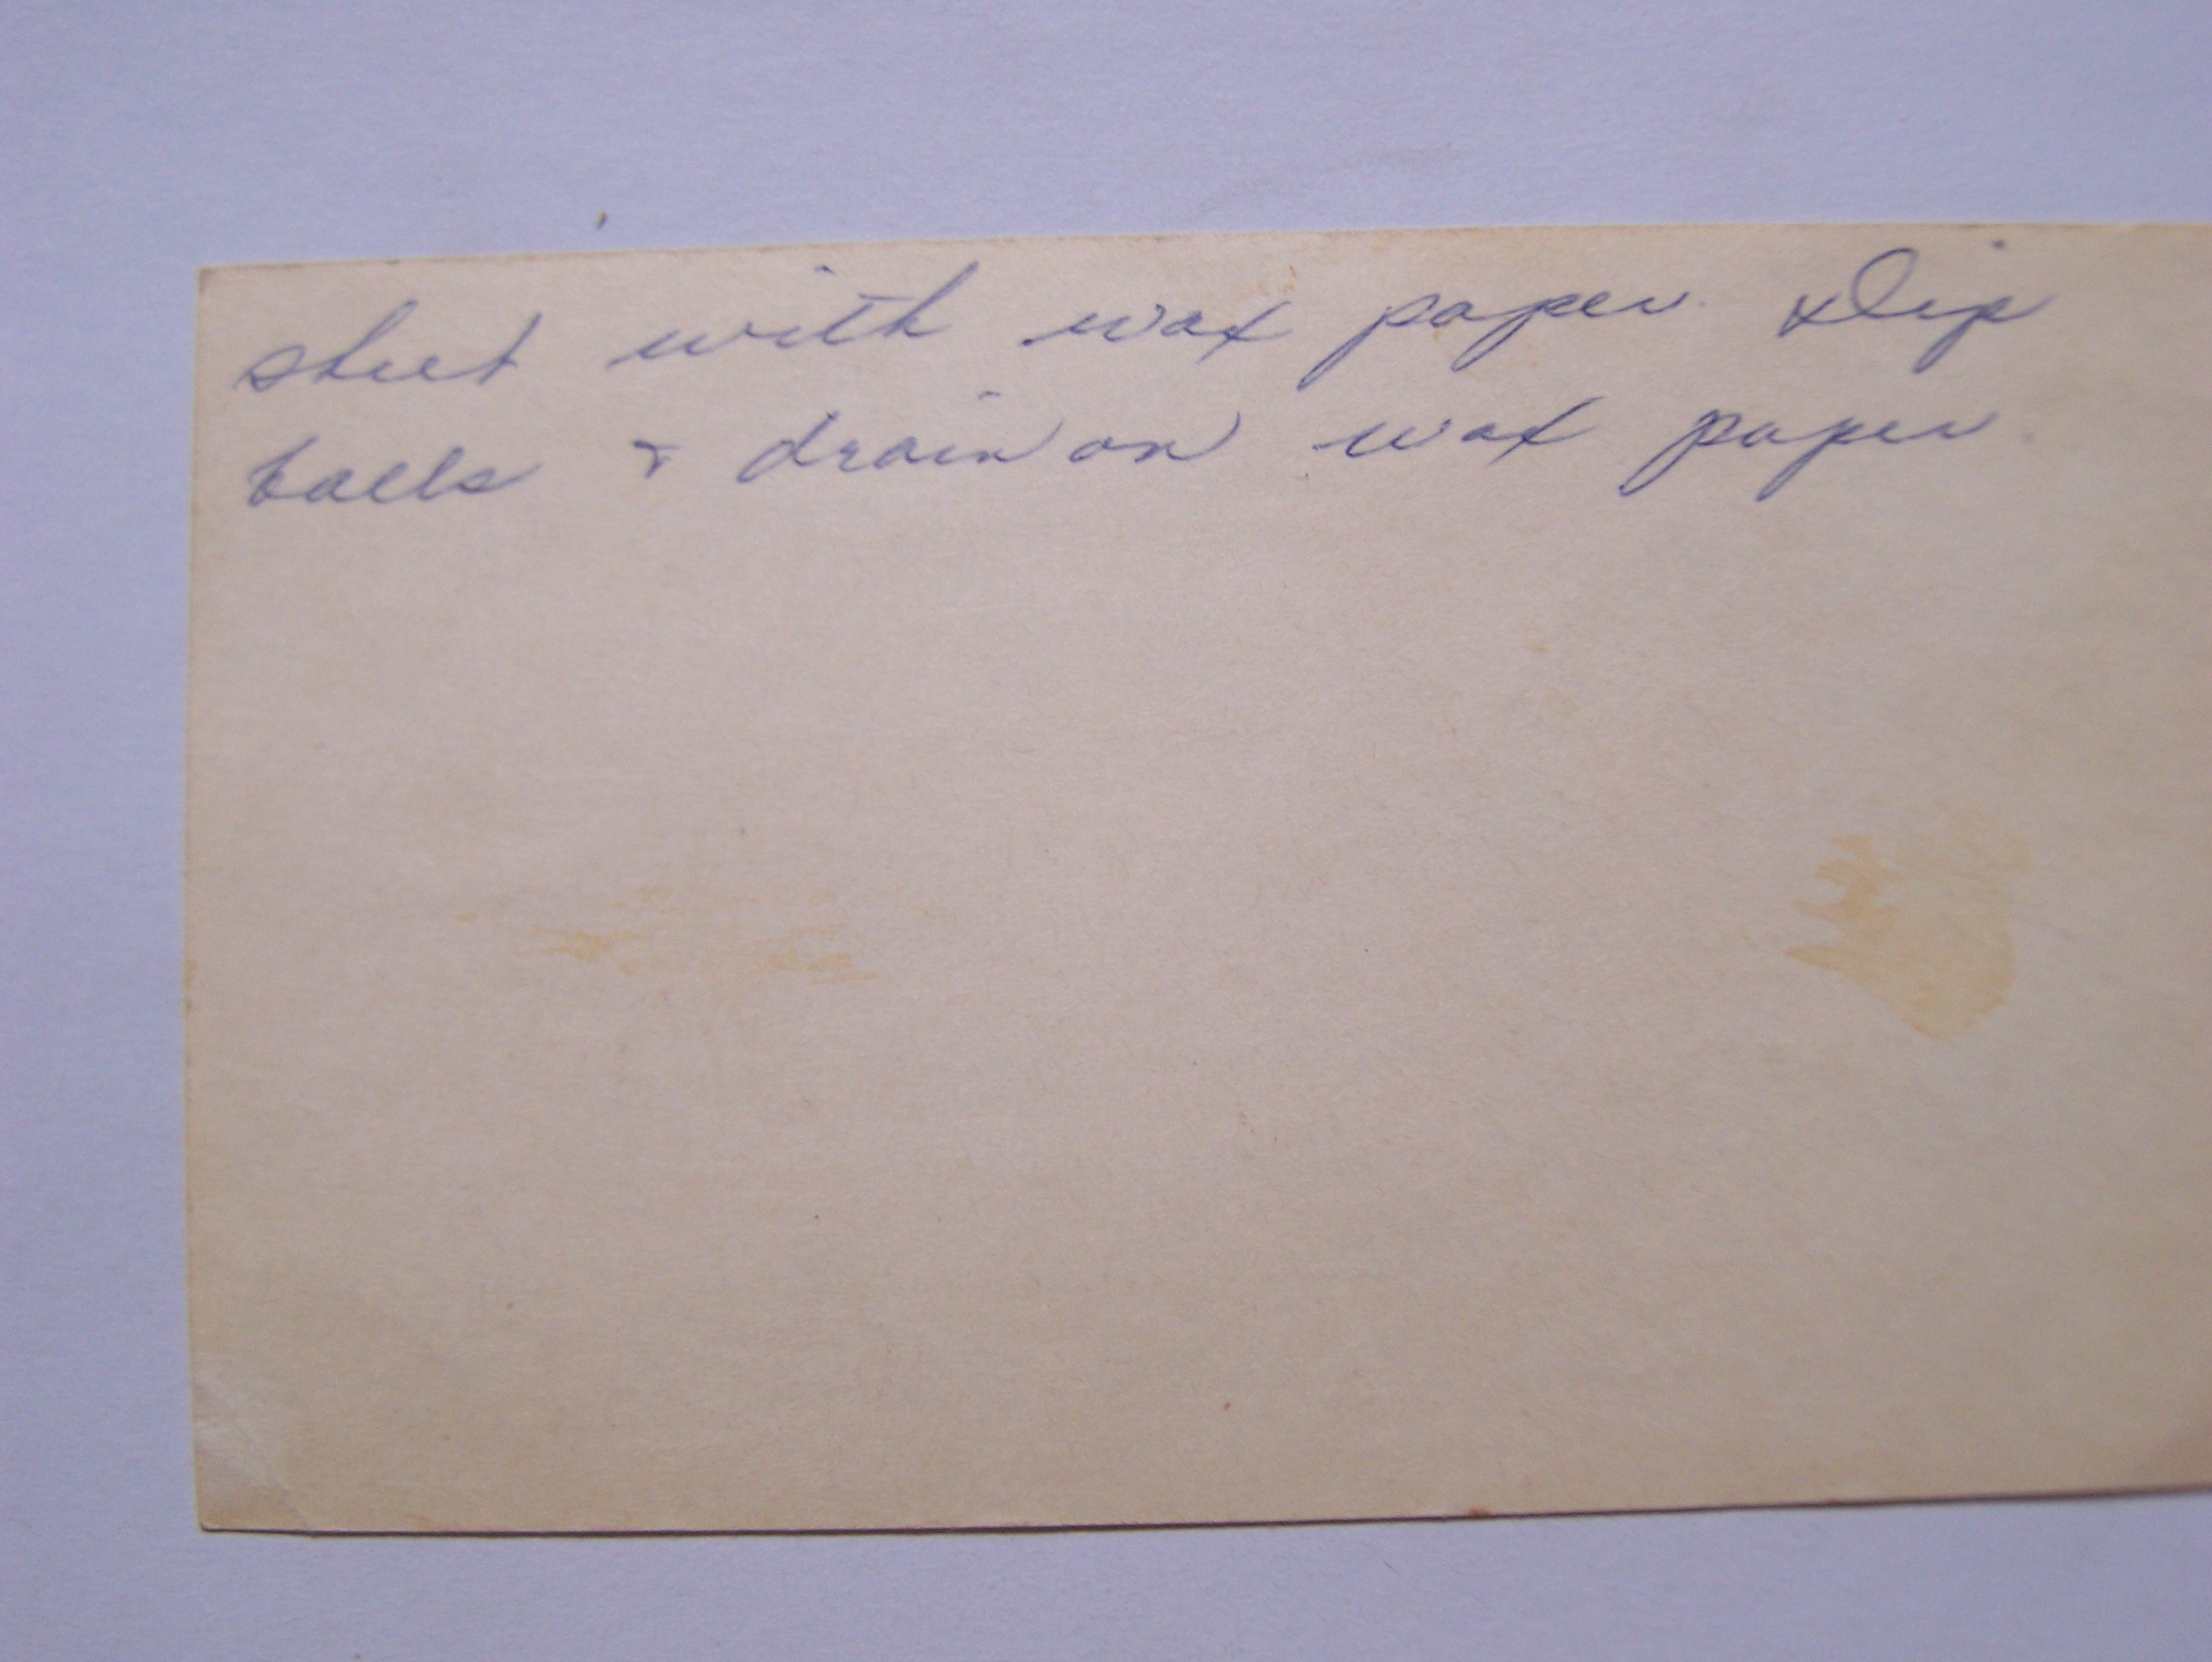 sheet with wax paper. & Dip
balls & drain on wax paper.